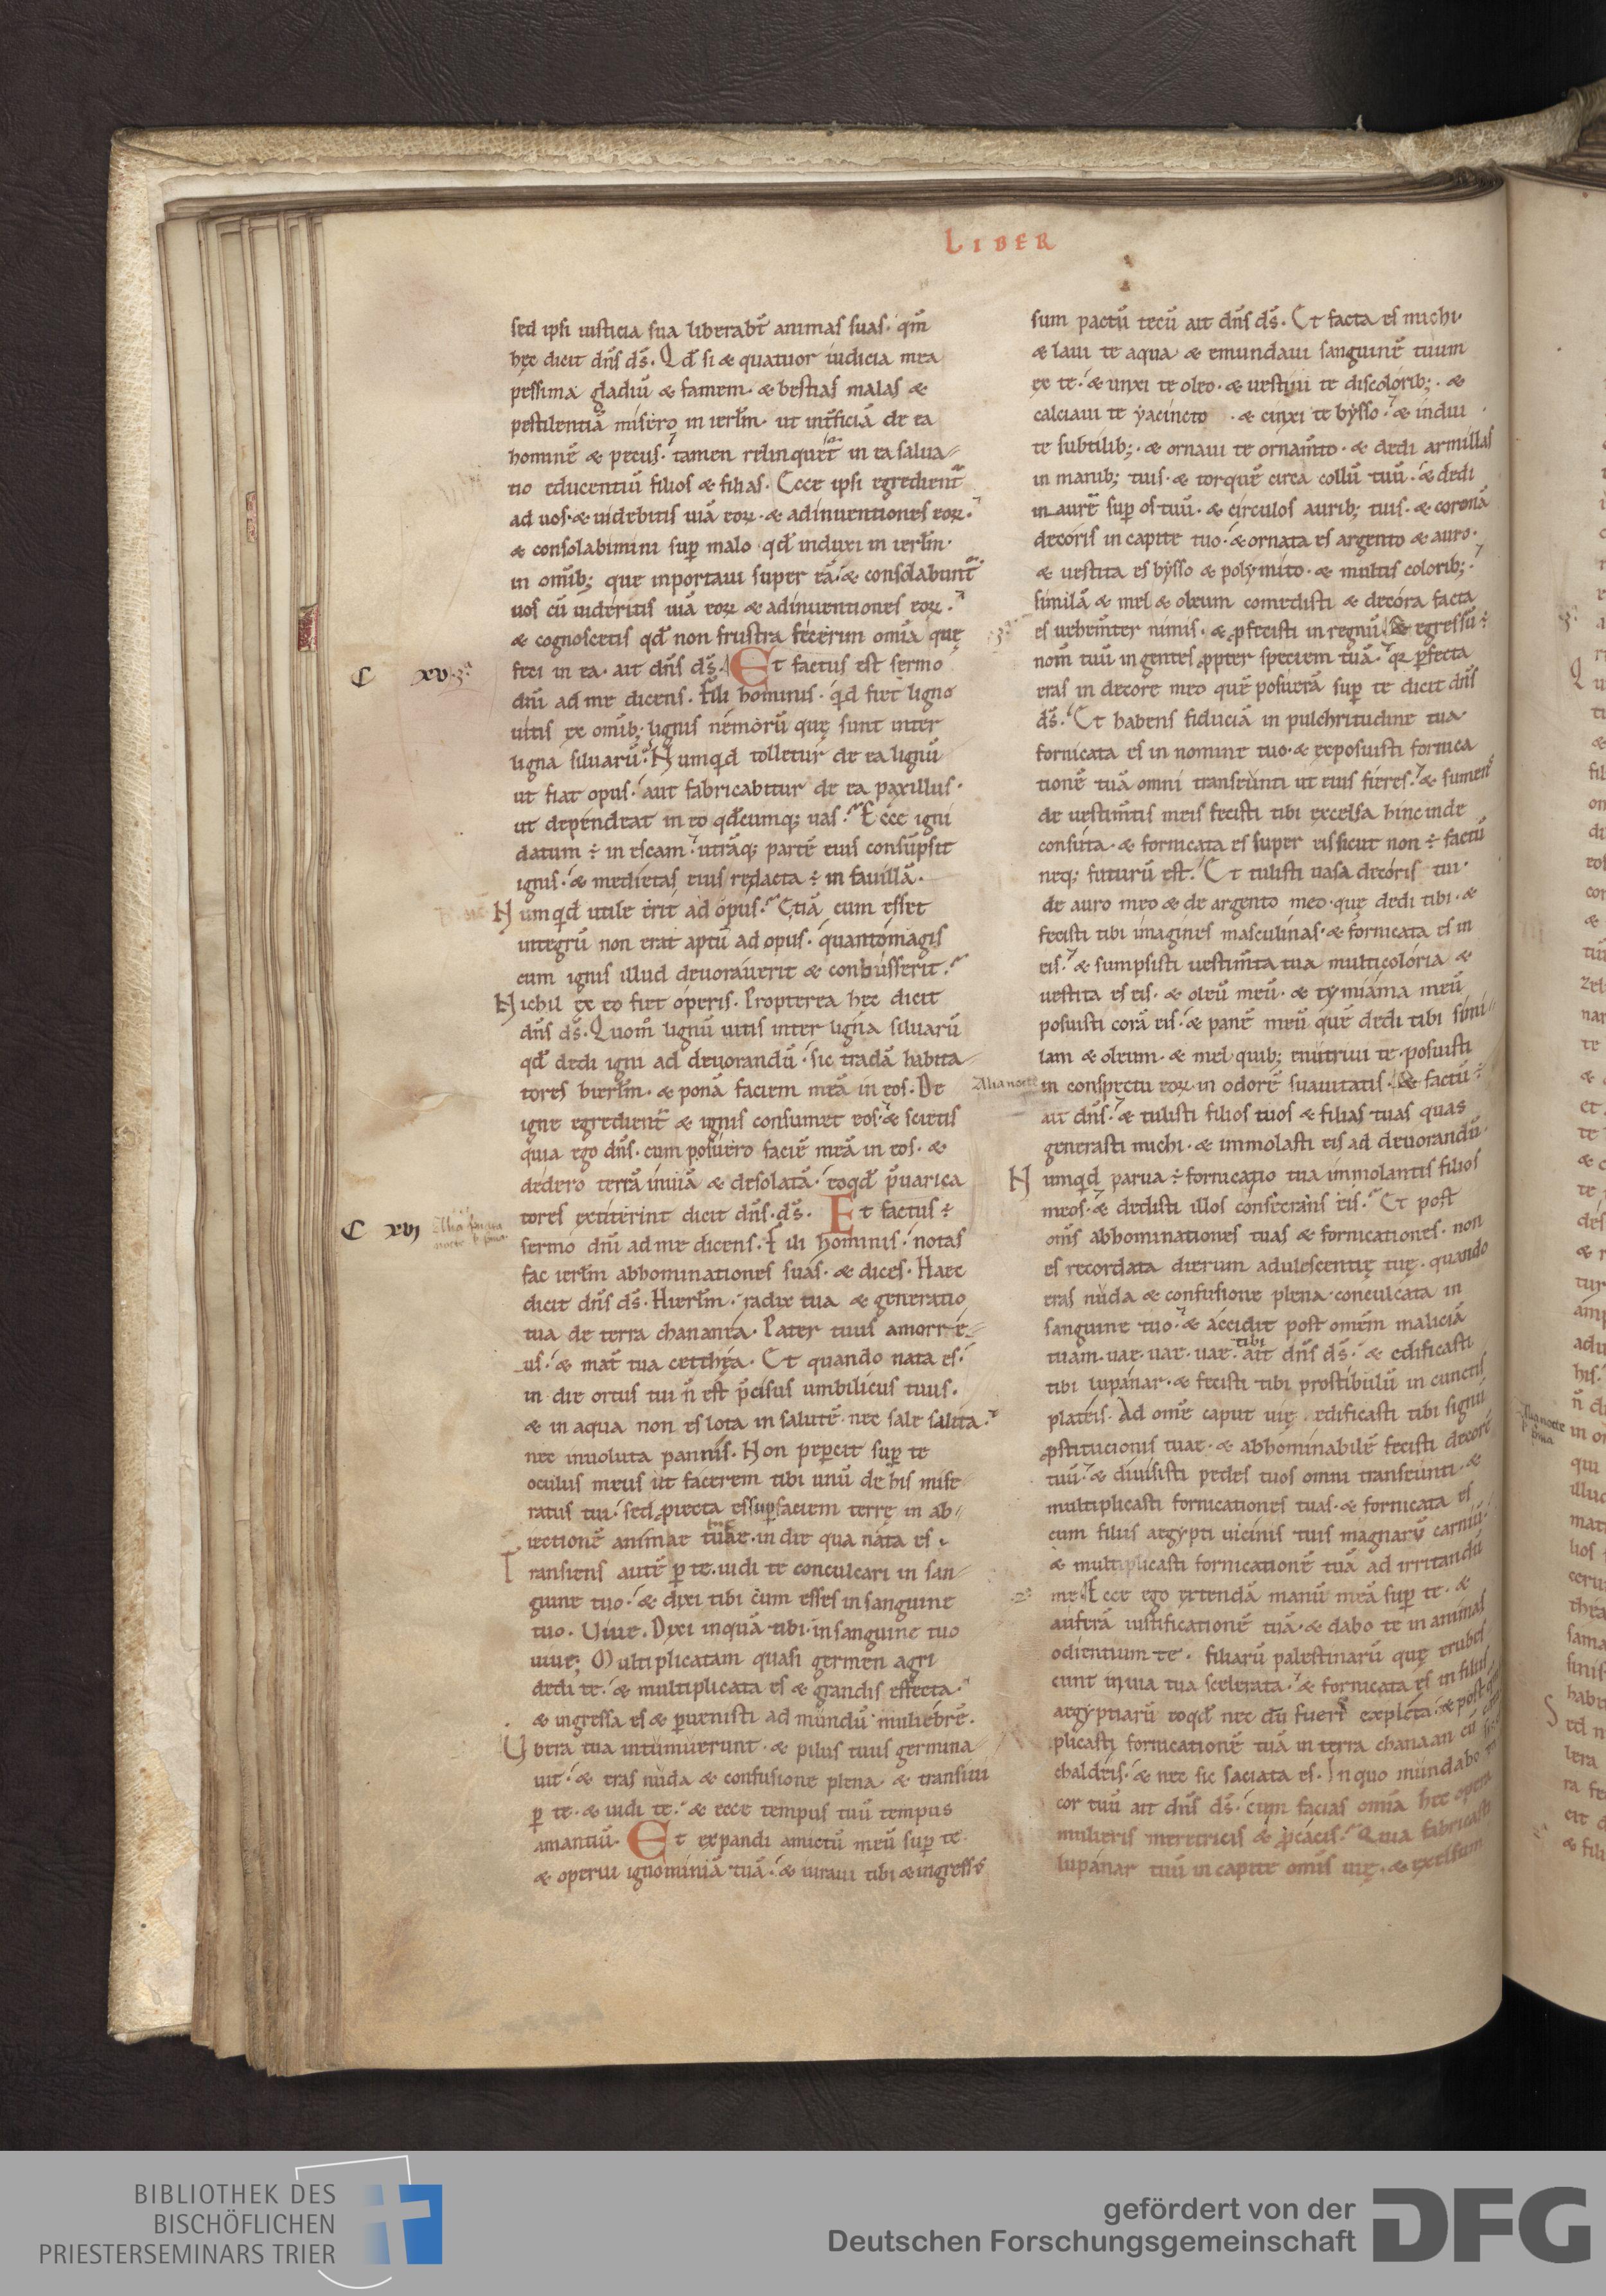 LIBER
sed ipsi iusticia sua liberabt̄ animas suas. qm̄
hęc dicit dn̄s ds̄. Qd̄ si & quatuor iudicia mea
pessima gladiū & famem. & bestias malas &
pestilentiā misero in ierl̄m. ut int̄ficiā de ea
hominē & pecus. tamen relinquet̄ in ea salua
tio educentiū filios & filias. Ecce ipsi egredient̄
ad uos. & uidebitis uiā eoꝝ. & adinuentiones eoꝝ.
& consolabimini sup̄ malo qd̄ induxi in ierl̄m.
in omīb; que inportaui super eā. & consolabunt̄
uos cū uideritis uiā eoꝝ & adinuentiones eoꝝ.
& cognoscetis qd̄ non frustra fecerim om̄ia quę
C xv.
feci in ea. ait dn̄s ds̄. Et factus est sermo
dn̄i ad me dicens. Fili hominis. qd fiet ligno
uitis ex omīb; lignis nemorū quę sunt inter
ligna siluarū. Numqd tolletur de ea lignū
ut fiat opus. aut fabricabitur de ea paxillus.
ut dependeat in eo qd̄cumq; uas. Ecce igni
datum ÷ in escam. utrāq; partē eius consūpsit
ignis. & medietas eius redacta ÷ in fauillā.
Numqd utile erit ad opus. Etiā cum esset
integrū non erat aptū ad opus. quantomagis
cum ignis illud deuorauerit & conbusserit.
Nichil ex eo fiet operis. Propterea hęc dicit
dn̄s ds̄. Quom̄ lignū uitis inter ligna siluarū
qd̄ dedi igni ad deuorandū. sic tradā habita
tores hierl̄m. & ponā faciem meā in eos. De
igne egredient̄ & ignis consumet eos. & scietis
quia ego dn̄s. cum posuero faciē meā in eos. &
dedero terrā inuiā & desolatā. eoqd̄ p̄uarica
C xvj
tores extiterint dicit dn̄s. ds̄. Et factus ÷
sermo dn̄i ad me dicens. Fili hominis. notas
fac ierl̄m abbominationes suas. & dices. Haec
dicit dn̄s ds̄. Hierl̄m. radix tua & generatio
tua de terra chananea. Pater tuus amorre
us. & mat̄ tua cetthęa. Et quando nata es.
in die ortus tui n̄ est p̄cisus umbilicus tuus.
& in aqua non es lota in salutē. nec sale salita.
nec inuoluta pannis. Non peꝑcit sup̄ te
oculus meus ut facerem tibi unū de his mise
ratus tui. sed ꝓiecta es sup̄ faciem terrę in ab
iectionē animae tuae. in die qua nata es.
Transiens autē ꝑ te. uidi te conculcari in san
guine tuo. & dixi tibi cum esses in sanguine
tuo. Uiue. Dixi inquā tibi. in sanguine tuo
uiue; Multiplicatam quasi germen agri
dedi te. & multiplicata es & grandis effecta.
& ingressa es & ꝑuenisti ad mundū muliebrē.
Ubera tua intumuerunt. & pilus tuus germina
uit. & eras nuda & confusione plena & transiui
ꝑ te. & uidi te. & ecce tempus tuū tempus
amantiū. Et expandi amictū meū sup̄ te.
& operui ignominiā tuā. & iuraui tibi & ingressꝰ
sum pactū tecū ait dn̄s ds̄. Et facta es michi.
& laui te aqua & emundaui sanguinē tuum
ex te. & unxi te oleo. & uestiui te discolorib;. &
calciaui te yacincto. & cinxi te bysso. & indui
te subtilib;. & ornaui te ornam̄to. & dedi armillas
in manib; tuis. & torquē circa collū tuū. & dedi
in aurē sup̄ os tuū. & circulos aurib; tuis. & coronā
decoris in capite tuo. & ornata es argento & auro.
& uestita es bysso & polymito. & multis colorib;.
similā & mel & oleum comedisti & decora facta
es uehem̄ter nimis. & ꝓfecisti in regnū. & egressū ÷
nom̄ tuū in gentes ꝓpter speciem tuā. qꝛ ꝑfecta
eras in decore meo quē posuerā sup̄ te dicit dn̄s
ds̄. Et habens fiduciā in pulchritudine tua
fornicata es in nomine tuo. & exposuisti fornica
tionē tuā omni transeunti ut eius fieres. & sumens
de uestim̄tis meis fecisti tibi excelsa hinc inde
consuta. & fornicata es super eis sicut non ÷ factū
neq; futurū est. Et tulisti uasa decoris tui.
de auro meo & de argento meo. quę dedi tibi. &
fecisti tibi imagines masculinas. & fornicata es in
eis. & sumpsisti uestim̄ta tua multicoloria &
uestita es eis. & oleū meū. & tymiama meū
posuisti corā eis. & panē meū quē dedi tibi simi
lam & oleum. & mel quib; enutriui te. posuisti
Alia nocte in conspectu eoꝝ. in odorē suauitatis. & factū ÷
ait dn̄s. & tulisti filios tuos & filias tuas quas
generasti michi. & immolasti eis ad deuorandū.
Numqd parua ÷ fornicatio tua immolantis filios
meos. & dedisti illos consecrans eis. Et post
om̄s abbominationes tuas & fornicationes. non
es recordata dierum adulescentię tuę. quando
eras nuda & confusione plena. conculcata in
sanguine tuo. & accidit post omēm maliciā
tuam. uae. uae. uae. tibi ait dn̄s ds̄. & edificasti
tibi lupanar. & fecisti tibi prostibulū in cunctis
plateis. Ad omē caput uię edificasti tibi signū
ꝓstitucionis tuae. & abhominabilē fecisti decorē
tuū. & diuisisti pedes tuos omni transeunti. &
multiplicasti fornicationes tuas. & fornicata es
cum filiis aegypti uicinis tuis magnarū carniū.
& multiplicasti fornicationē tuā ad irritandū
me. Ecce ego extendā manū meā sup̄ te. &
auferā iustificationē tuā. & dabo te in animas
odientium te. filiarū palestinarū quę erubes
cunt in uia tua scelerata. & fornicata es in filiis
aegyptiarū eoqd̄ nec dū fueris expleta. & post
plicasti fornicationē tuā in terra chanaan cū
chaldeis. & nec sic saciata es. In quo mundabo
cor tuū ait dn̄s ds̄. cum facias om̄ia hęc opera
mulieris meretricis & ꝓcacis. Quia fabricasti
lupanar tuū in capite om̄is uię. & excelsum
BIBLIOTHEK DES
BISCHÖFLICHEN
PRIESTERSEMINARS TRIER
gefördert von der
Deutschen Forschungsgemeinschaft
DFG